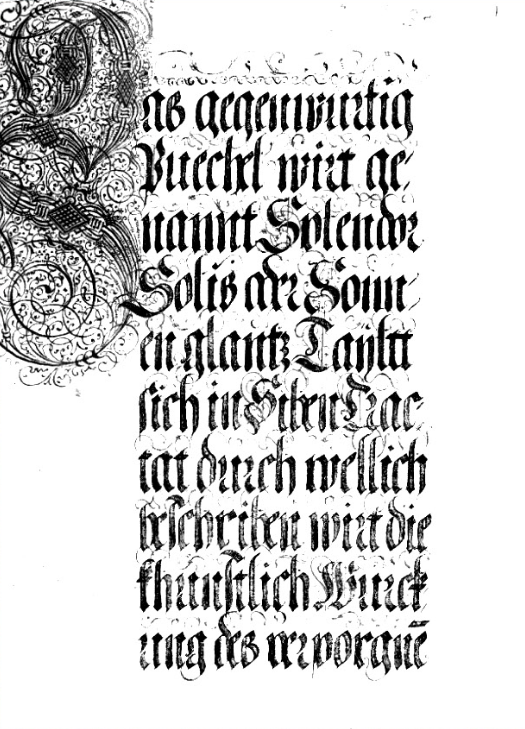 Das gegenwurtig
Puechel wirt ge
nannt Splendor
Solis oder Sonn
en glantz Tayltt
sich in Siben Trac
tat durch wellich
beschriben wirt die
khunstlich Wurck
ung des verporgnē